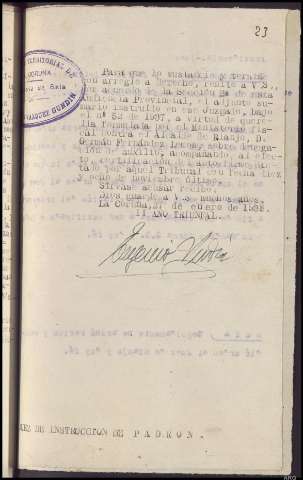 23
TERRITORIAL DE
CORUÑA
VAZQUEZ GUNDIN
Para que lo sustancie y termine
con arreglo a Derecho, remito a V.S.,
por acuerdo de la Sección de esta
Audiencia Provincial, el adjunto su-
mario instruido en ese Juzgado, bajo
el nº 52 de 1937, a virtud de quere-
lla formulada por el Ministerio Fis-
cal contra el Alcalde de Rianjo, D.
Germán Fernández sobre denega-
ción de auxilio, acompañando, al efec-
to, certificación del auto dic-
tado por aquel Tribunal con fecha diez
y ocho de noviembre último.
Sírvase acusar recibo.
Dios guarde a V.S. muchos años.
La Coruña, de enero de 1938.
II AÑO TRIUNFAL.
JUEZ DE INSTRUCCION DE PADRON.